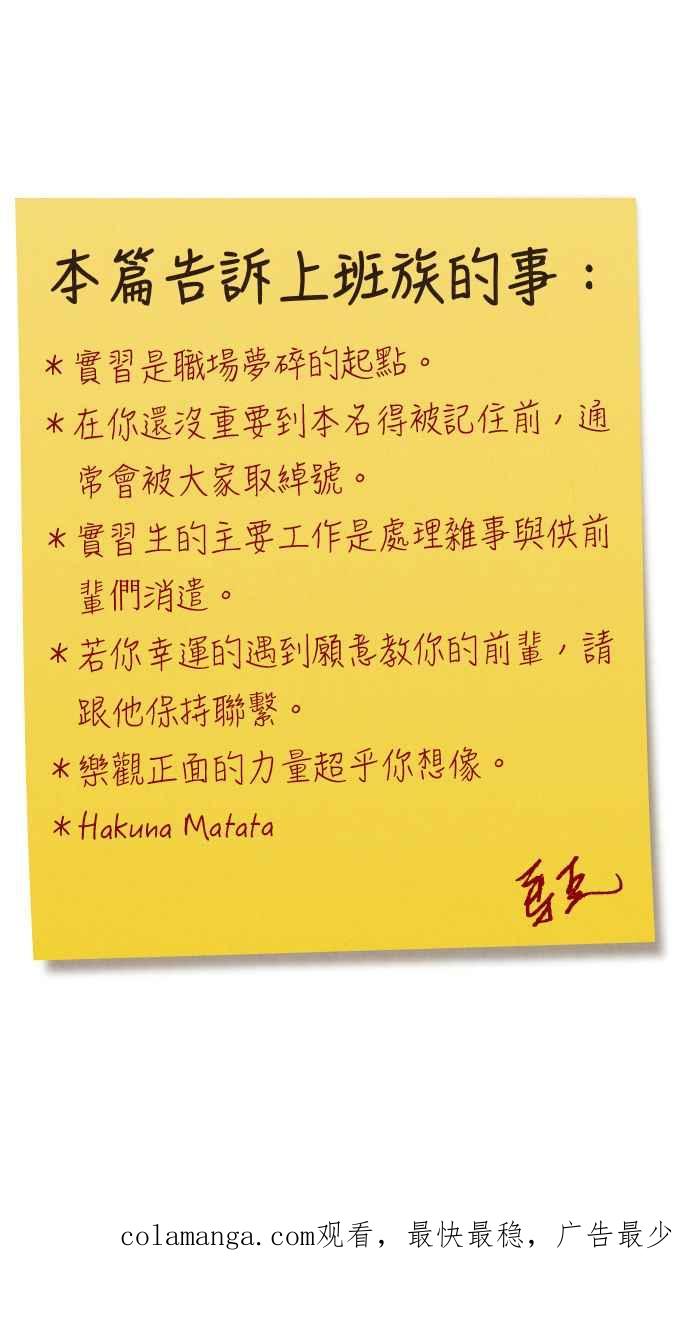 本篇告訴上班族的事：
＊實習是職場夢碎的起點。
＊在你還沒重要到本名得被記住前，通
常會被大家取綽號。
＊實習生的主要工作是處理雜事與供前
輩們消遣。
＊若你幸運的遇到願意教你的前輩，請
跟他保持聯繫。
＊樂觀正面的力量超乎你想像。
＊Hakuna Matata
colamanga.com观看，最快最稳，广告最少